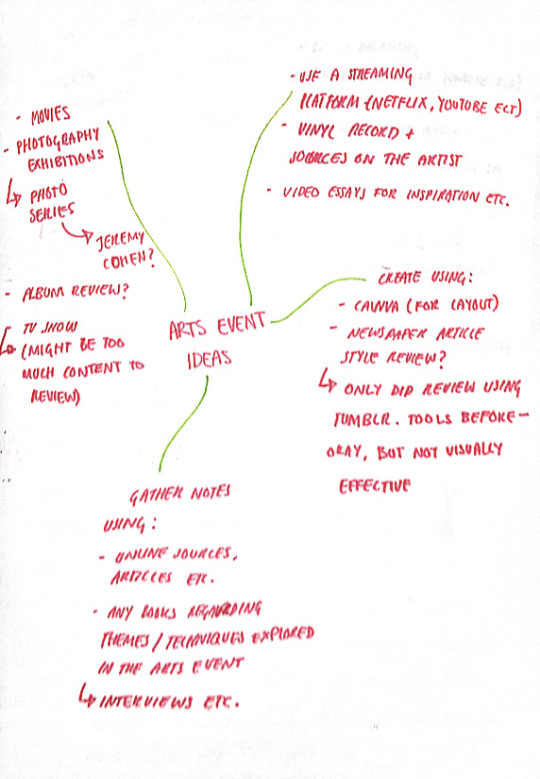 - MOVIES
- PHOTOGRAPHY
EXHIBITIONS
↳ PHOTO
SERIES
→ JEREMY
COHEN?
- ALBUM REVIEW?
- TV SHOW
↳ (MIGHT BE TOO
MUCH CONTENT TO
REVIEW)
- USE A STREAMING
PLATFORM (NETFLIX, YOUTUBE ECT)
- VINYL RECORD +
SOURCES ON THE ARTIST
- VIDEO ESSAYS FOR INSPIRATION ETC.
ARTS EVENT
IDEAS
CREATE USING:
- CANVA (FOR LAYOUT)
- NEWSPAPER ARTICLE
STYLE REVIEW?
↳ ONLY DID REVIEW USING
TUMBLR. TOOLS BEFORE -
OKAY, BUT NOT VISUALLY
EFFECTIVE
GATHER NOTES
USING:
- ONLINE SOURCES,
ARTICLES ETC.
- ANY BOOKS REGARDING
THEMES / TECHNIQUES EXPLORED
IN THE ARTS EVENT
↳ INTERVIEWS ETC.